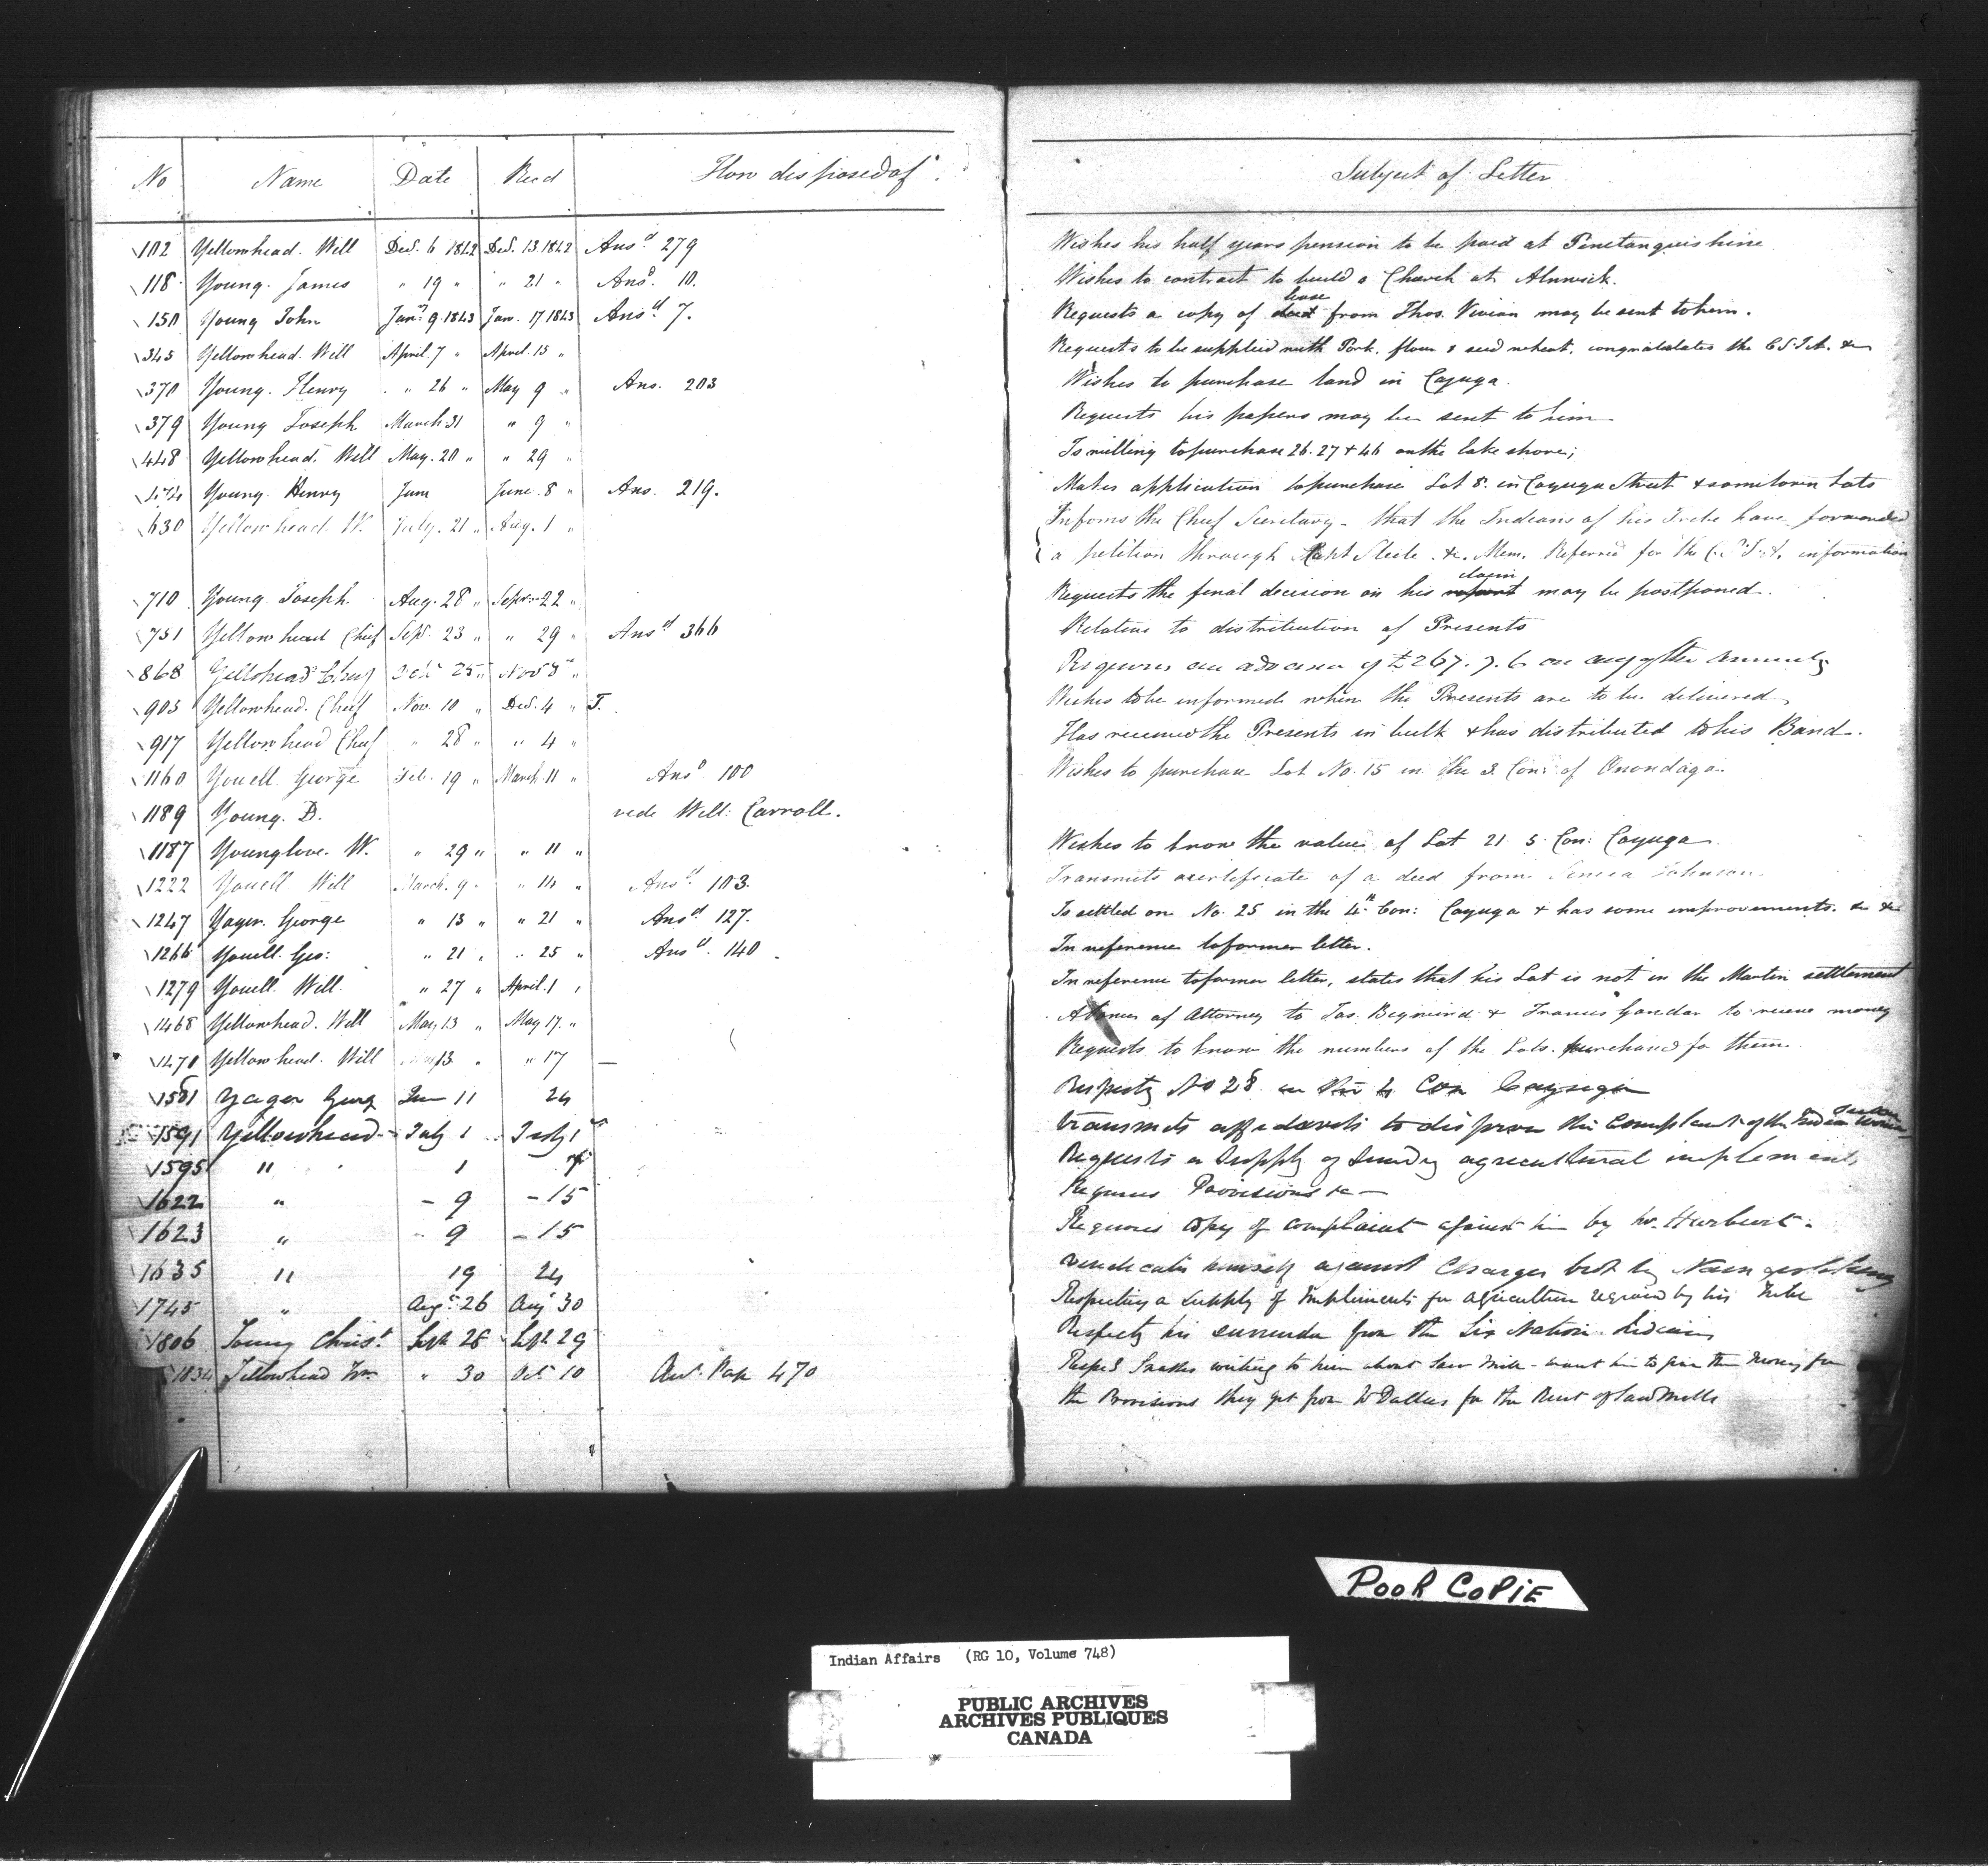 No Name Date Recd How disposed of. Subject of Letter
102 Yellowhead. Will Dec. 6 1842 Dec. 13 1842 Ansd 279 Wishes his half years pension to be paid at Penetanguishine
118 Young. James " 19 " " 21 " Ansd. 10. Wishes to contract to build a Church at Alnwick.
150 Young John Jany 9. 1843 Jan. 17 1843 Ansd. 7. Requests a copy of deed lease from Thos. Vivian may be sent to him.
345 Yellowhead. Will April. 7 " April. 15 " Requests to be supplied with Pork, flour & seed wheat, congratulates the C.S.I.A. &c
370 Young. Henry " 26 " May 9 " Ans. 203 Wishes to purchase land in Cayuga.
379 Young Joseph March 31 " 9 " Requests his papers may be sent to him
448 Yellowhead. Will May. 20 " " 29 " Is willing to purchase 26. 27 & 46 on the lake shore;
474 Young. Henry June June. 8 " Ans. 219. Makes application to purchase Lot 8. in Cayuga Street & some town Lots
630 Yellowhead. W. July. 21 " Aug. 1 " Informs the Chief Secretary - that the Indians of his Tribe have forwarded
a petition through Capt Steele &c. Mem. Referred for the C.S.I.A. information
710 Young Joseph. Aug. 28 " Sepr. 22 " Requests the final decision on his report claim may be postponed.
751 Yellowhead Chief Sept. 23 " " 29 " Ansd 366 Relative to distribution of Presents
868 Yellohead Chief Oct 25 " Nov 8 " Requires an advance of £267. 7. 6 on acc of the Annuity
905 Yellowhead. Chief Nov. 10 " Dec. 4 " T. Wishes to be informed when the Presents are to be delivered
917 Yellowhead Chief " 28 " " 4 " Has received the Presents in bulk & has distributed to his Band.
1160 Youell. George Feb. 19 " March. 11 " Ansd. 100 Wishes to purchase Lot No. 15 in the 3. Con: of Onondaga.
1189 Young. D. vide Will: Carroll.
1187 Younglove. W. " 29 " " 11 " Wishes to know the value of Lot 21 5. Con: Cayuga
1222 Youell Will March. 9 " " 14 " Ansd. 103. Transmits a certificate of a deed from Seneca Johnson.
1247 Yager. George " 13 " " 21 " Ansd. 127. Is settled on No. 25 in the 4th Con: Cayuga & has some improvements. &c &c
1266 Youell. Geo: " 21 " " 25 " Ansd. 140 In reference to former letter.
1279 Youell. Will. " 27 " April. 1 " In reference to former letter, states that his Lot is not in the Martin settlement
1468 Yellowhead. Will May 13 " May 17. " A Power of Attorney to Jas. & Francis Gandar to receive money
1470 Yellowhead. Will May 13 " " 17 — Requests to know the numbers of the Lots. purchased for them.
1581 Yager Georg Jun 11 24 Respectg No 28 in the 4 Con Cayuga
1591 Yellowhead July 1 July 1 transmits affidavits to disprove the Complaint of the Indian Woman
1595 " 1 Requests a Supply of Sundry agricultural implements
1622 " - 9 - 15 Requires Provisions &c —
1623 " - 9 - 15 Requires Copy of complaint against him by W. Hurlburt.
1635 " 19 24 vindicates himself against Charges brot by
1745 " Augt 26 Aug 30 Respecting a supply of Impliments for agriculture required by his Tribe
1806 Young Christ. Sept 28 Sept 29 Respectg his surrender from the Six Nation Indians
1834 Yellowhead Wm " 30 Oct 10 Ans. Page 470 Respec Snakes writing to him about Saw Mill - want him to give them money for
the Provisions they get from W Dallas for the Rent of Saw Mills
POOR COPIE
Indian Affairs (RG 10, Volume 748)
PUBLIC ARCHIVES
ARCHIVES PUBLIQUES
CANADA